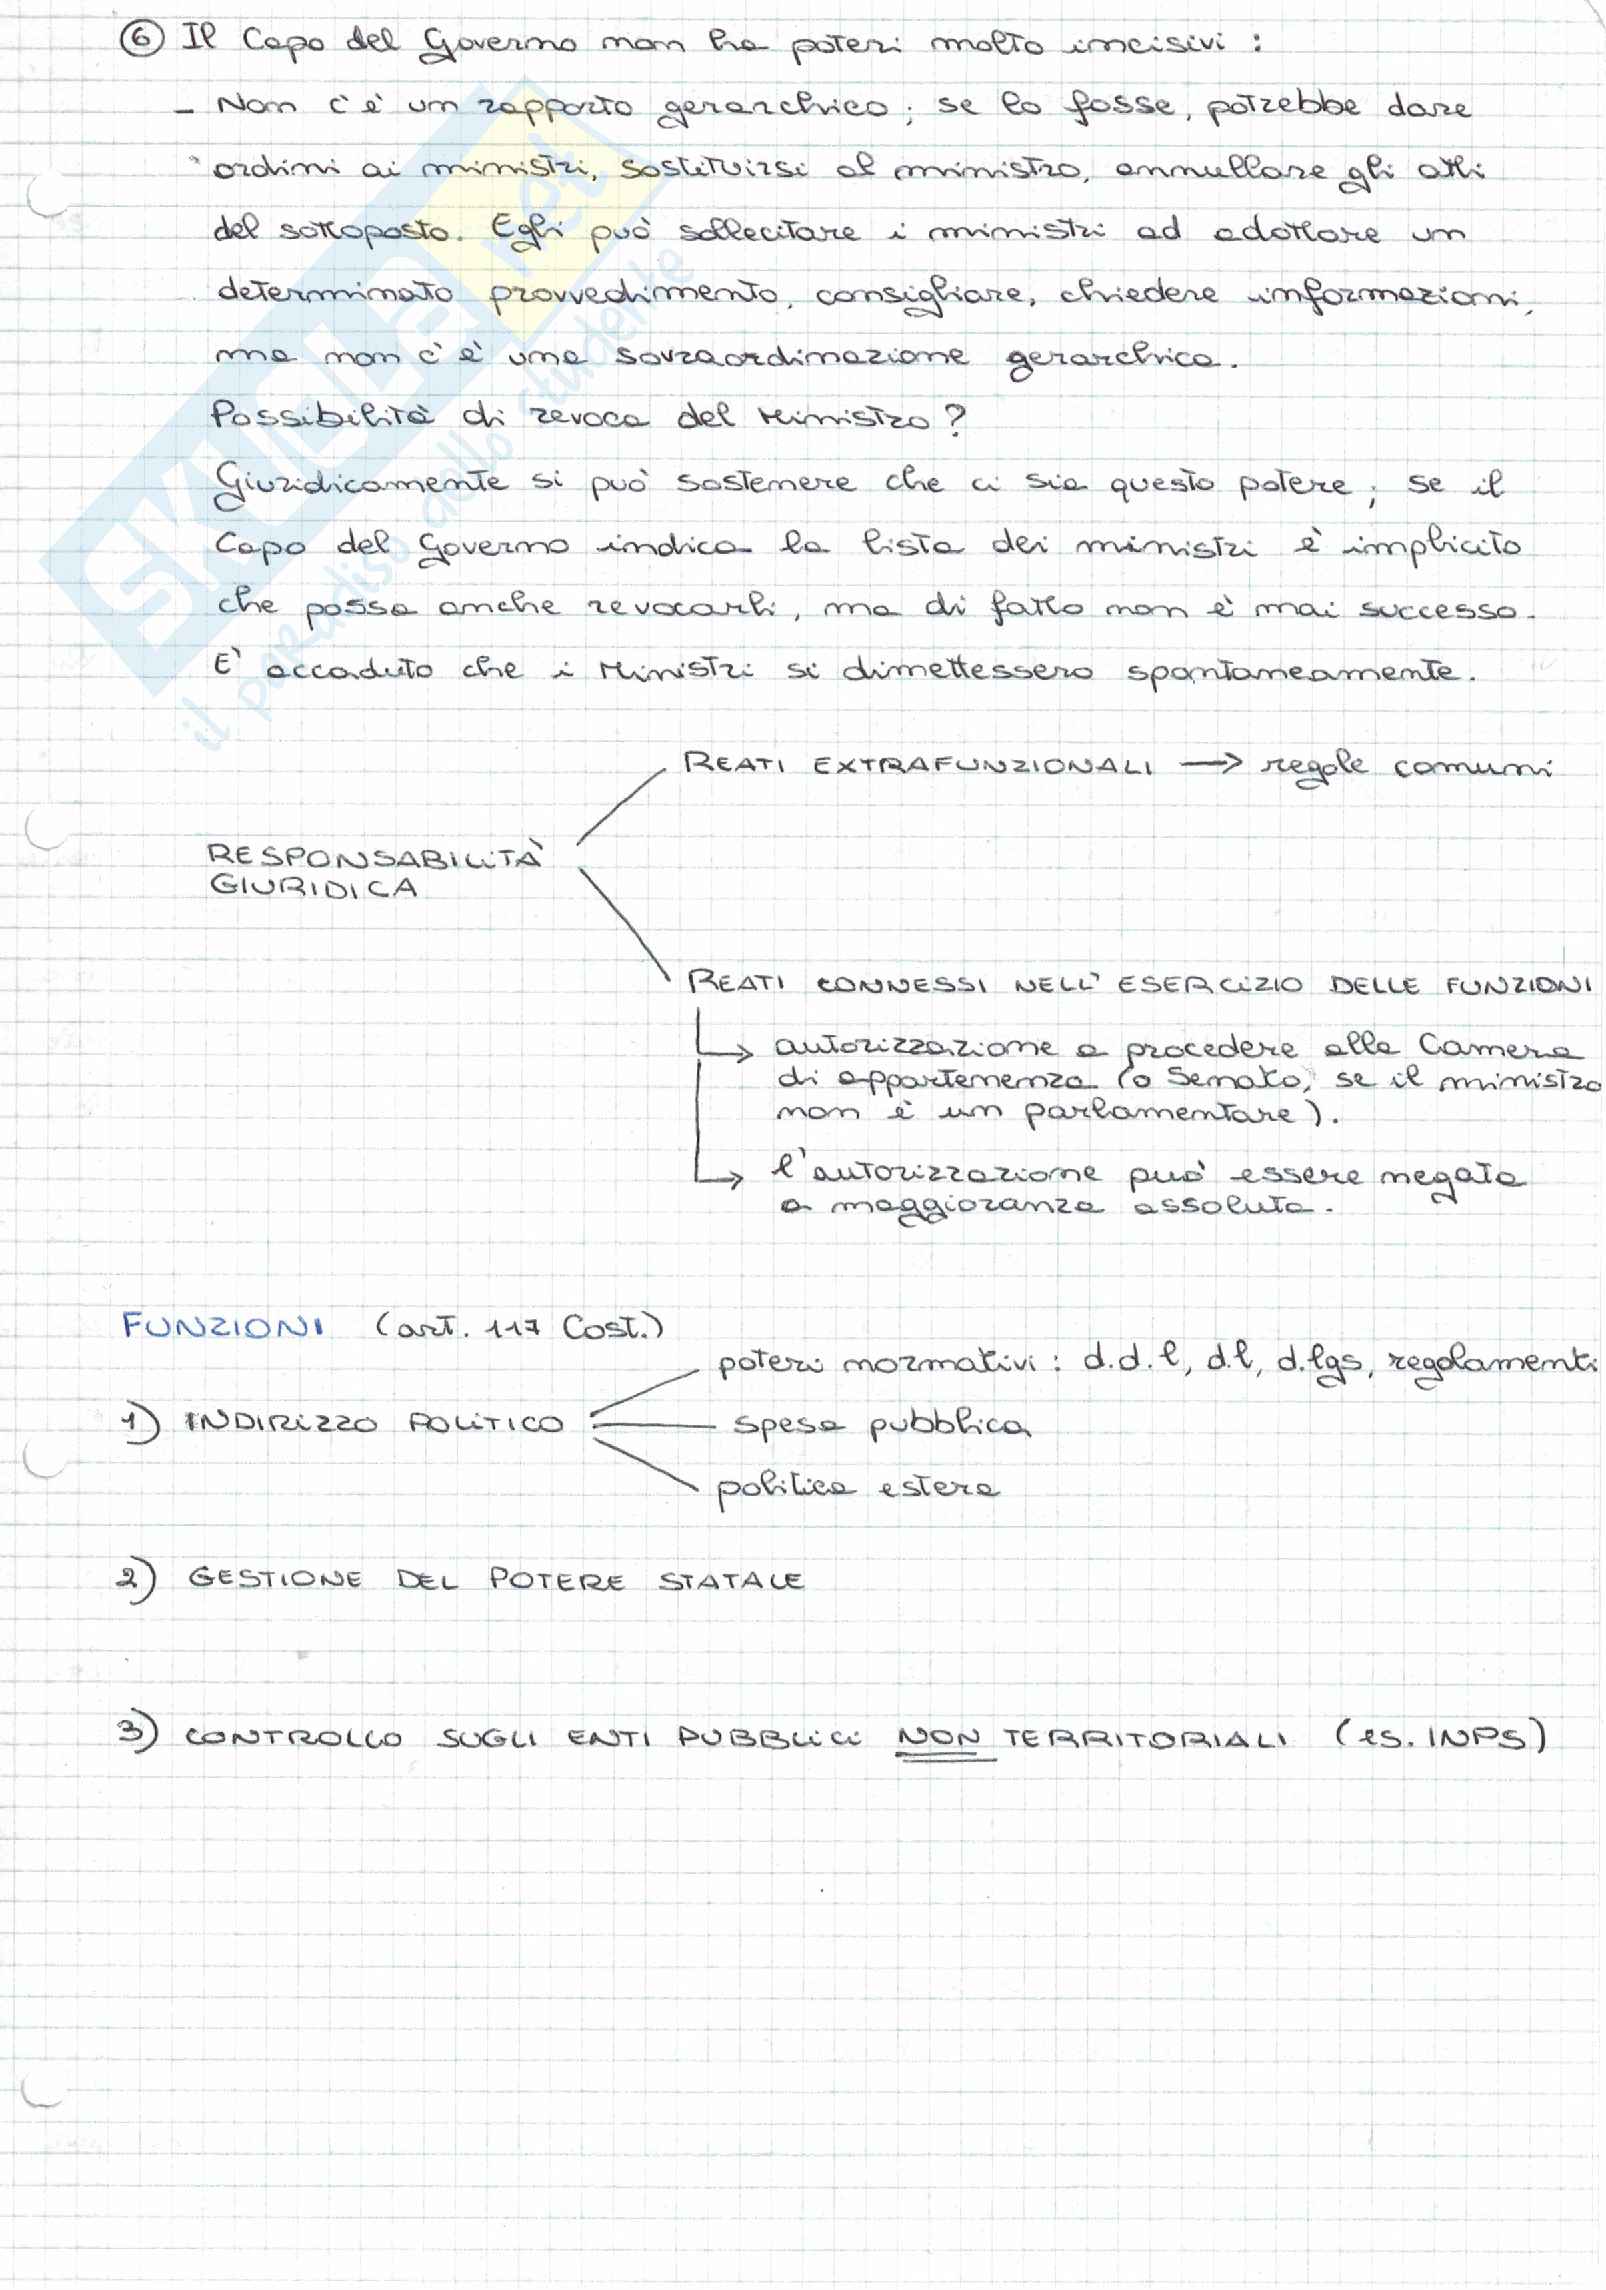 ⑥ Il Capo del Governo non ha poteri molto incisivi :
- Non c'è un rapporto gerarchico; se lo fosse, potrebbe dare
ordini ai ministri, sostituirsi al ministro, annullare gli atti
del sottoposto. Egli può sollecitare i ministri ad adottare un
determinato provvedimento, consigliare, chiedere informazioni,
ma non c'è una sovraordinazione gerarchica.
Possibilità di revoca del Ministro?
Giuridicamente si può sostenere che ci sia questo potere; se il
Capo del Governo indica la lista dei ministri è implicito
che possa anche revocarli, ma di fatto non è mai successo.
E' accaduto che i Ministri si dimettessero spontaneamente.
REATI EXTRAFUNZIONALI → regole comuni
RESPONSABILITÀ
GIURIDICA
REATI CONNESSI NELL'ESERCIZIO DELLE FUNZIONI
autorizzazione a procedere alla Camera
di appartenenza (o Senato, se il ministro
non è un parlamentare).
l'autorizzazione può essere negata
a maggioranza assoluta.
FUNZIONI (art. 117 Cost.)
poteri normativi : d.d.l, d.l, d.lgs, regolamenti
1) INDIRIZZO POLITICO
spesa pubblica
politica estera
2) GESTIONE DEL POTERE STATALE
3) CONTROLLO SUGLI ENTI PUBBLICI NON TERRITORIALI (es. INPS)
SKUOLA.net
il paradiso dello studente